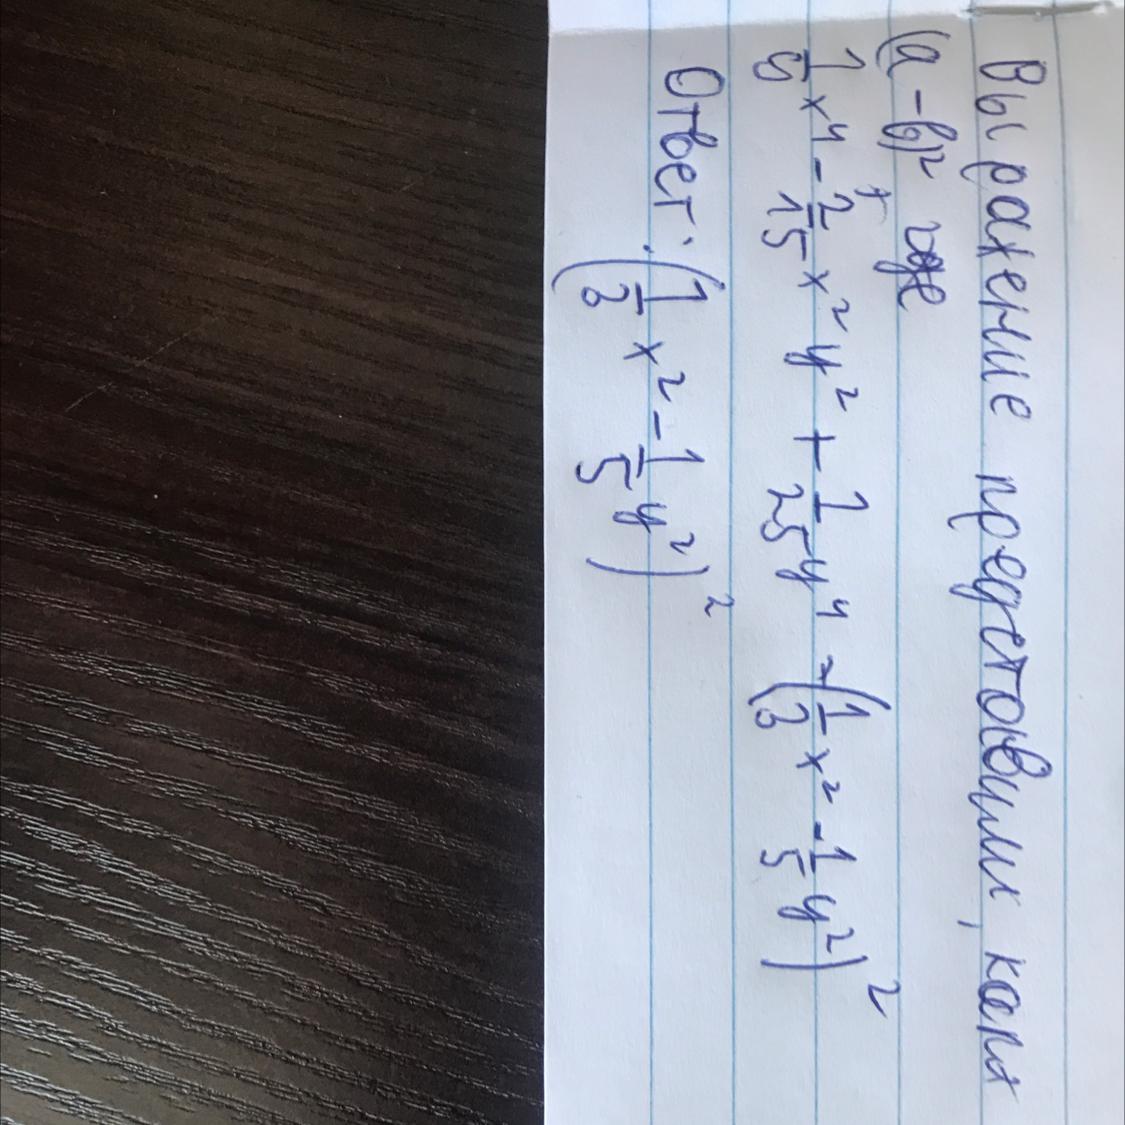 Выражение представим, как
(a-b)², где
1/9 x⁴ - 2/15 x² y² + 1/25 y⁴ = (1/3 x² - 1/5 y²)²
Ответ: (1/3 x² - 1/5 y²)²